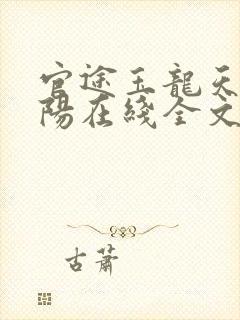 官途王龍天
陽在綫全文
古蕭